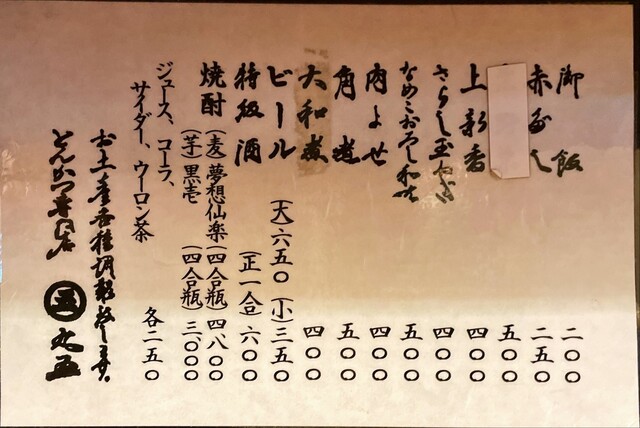 御飯 二〇〇
赤だし 二五〇
五〇〇
上新香 四〇〇
さらし玉ねぎ 四〇〇
なめこおろし和せ 五〇〇
肉よせ 四〇〇
角煮 五〇〇
大和煮 四〇〇
ビール (大)六五〇 (小)三五〇
特級酒 (正一合)六〇〇
焼酎 (麦)夢想仙楽(四合瓶)四八〇〇
(芋)黒壱(四合瓶)三、〇〇〇
ジュース、コーラ、
サイダー、ウーロン茶 各二五〇
お土産各種調製致します。
とんかつ専門店 五 丸五